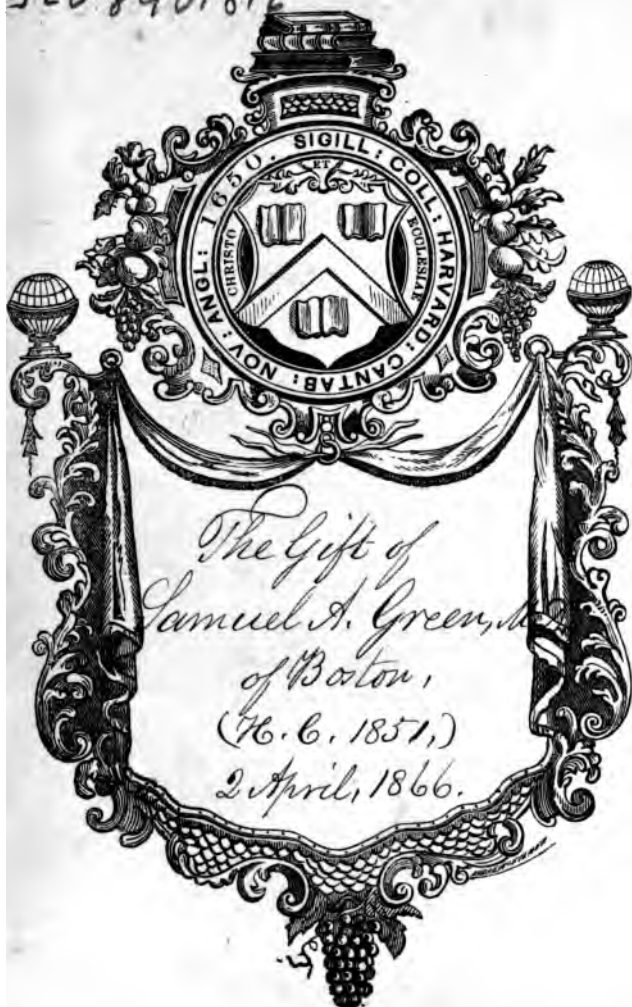 SIGILL: COLL: HARVARD: CANTAB: NOV: ANGL: 1650.
CHRISTO ET ECCLESIAE
The Gift of
Samuel A. Green,
of Boston,
(H. C. 1851,)
2 April, 1866.